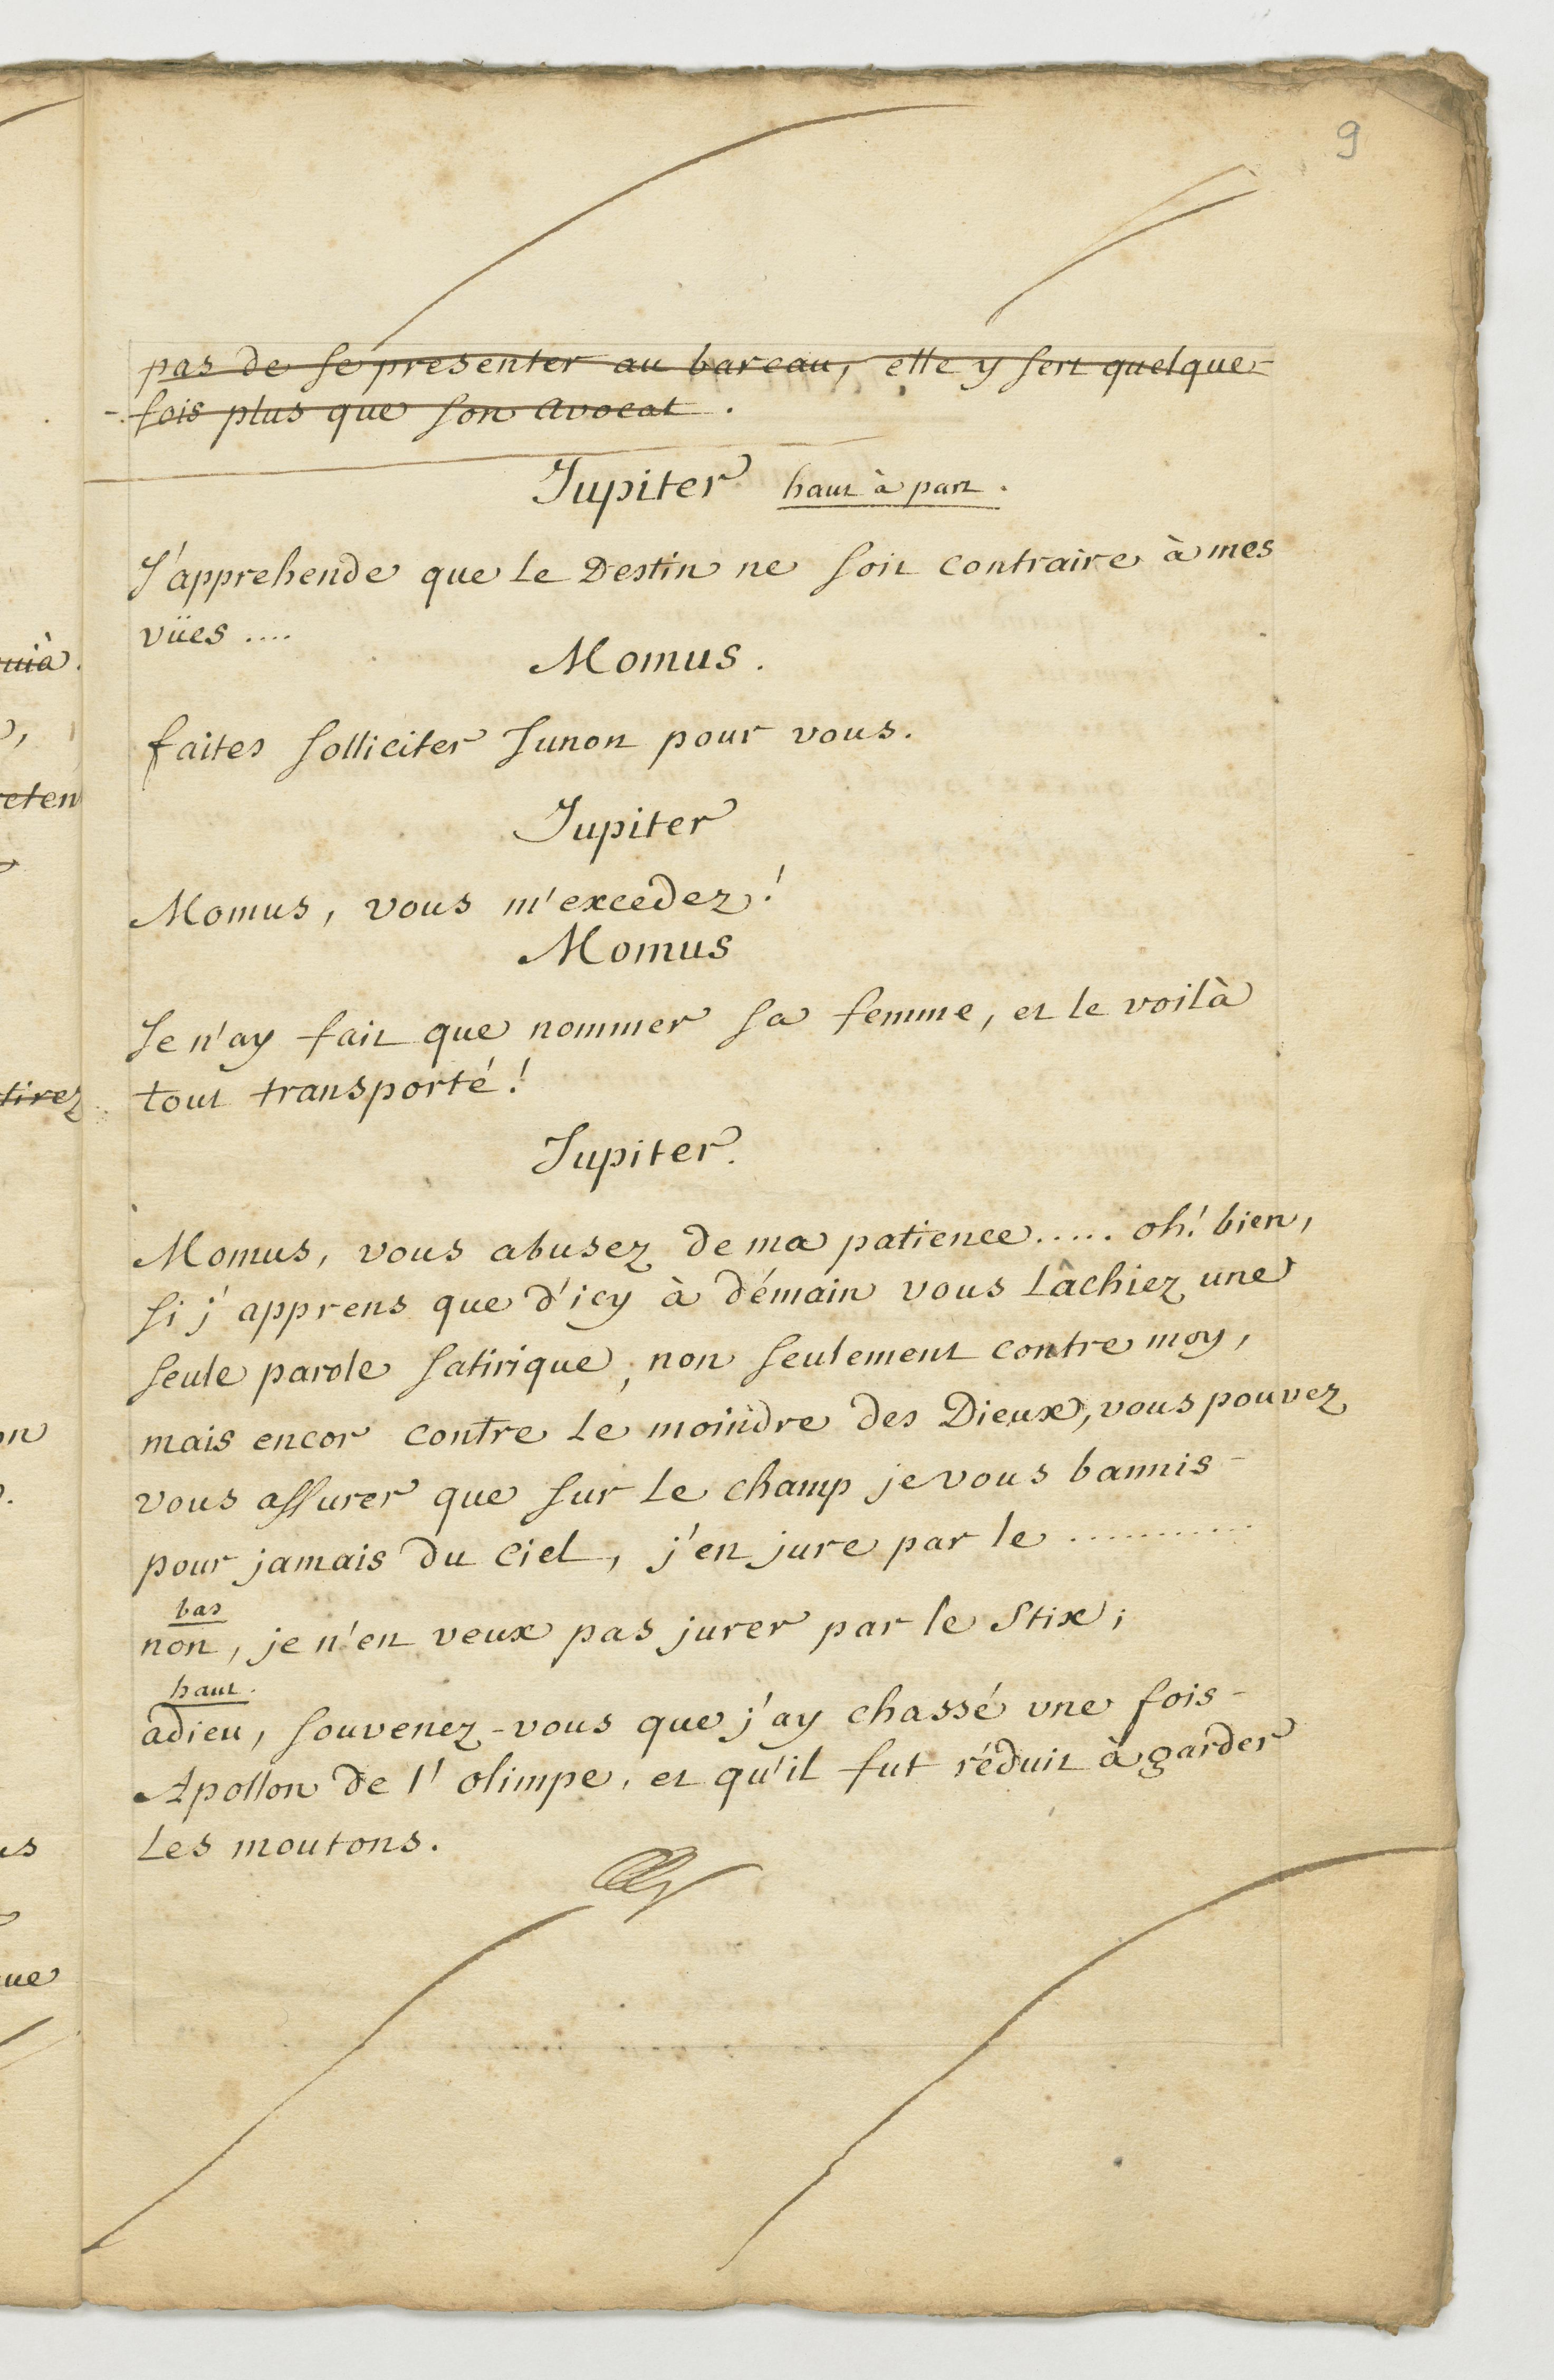 9
pas de se presenter au bareau, elle y sert quelque-
-fois plus que son avocat.
Jupiter haut à part.
J'apprehende que le Destin ne soit contraire à mes
vües ....
Momus.
faites solliciter Junon pour vous.
Jupiter
Momus, vous m'excedez!
Momus
Je n'ay fait que nommer sa femme, et le voilà
tout transporté!
Jupiter.
Momus, vous abusez de ma patience..... oh! bien,
si j'apprens que d'icy à démain vous lâchiez une
seule parole satirique, non seulement contre moy,
mais encor contre le moindre des Dieux, vous pouvez
vous assurer que sur le champ je vous bannis-
pour jamais du ciel, j'en jure par le ............
bas
non, je n'en veux pas jurer par le Stix;
haut.
adieu, souvenez-vous que j'ay chassé une fois-
Apollon de l'olimpe, et qu'il fut réduit à garder
les moutons.